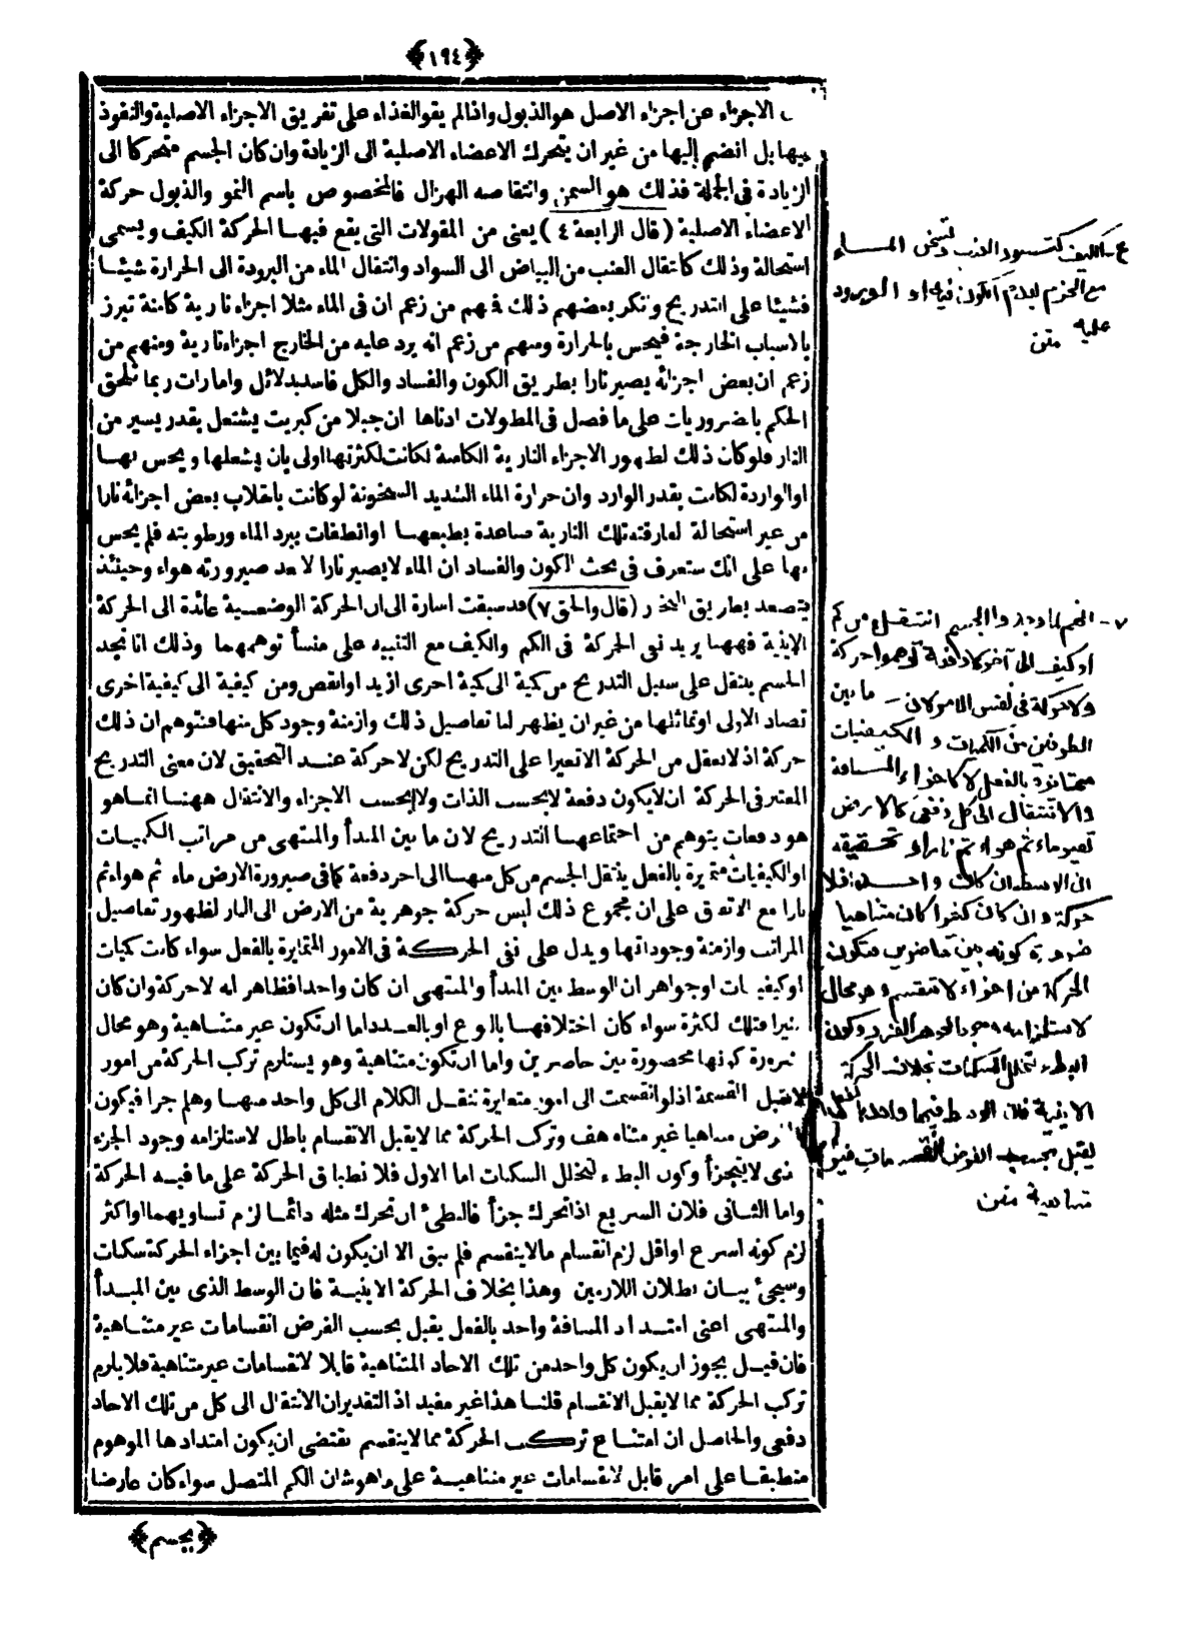 ﴿١٩٤﴾
الاجزاء عن اجزاء الاصل هو الذبول واذا لم يقو الغذاء على تفريق الاجزاء الاصلية والنفوذ
فيها بل انضم إليها من غير ان يتحرك الاعضاء الاصلية الى الزيادة وان كان الجسم متحركا الى
الزيادة فى الجملة فذلك هو السمن وانتقاصه الهزال فالمخصوص باسم النمو والذبول حركة
الاعضاء الاصلية (قال الرابعة ٤) يعنى من المقولات التى يقع فيها الحركة الكيف ويسمى
استحالة وذلك كانتقال العنب من البياض الى السواد وانتقال الماء من البرودة الى الحرارة شيئا
فشيئا على التدريج وانكر بعضهم ذلك فمنهم من زعم ان فى الماء مثلا اجزاء نارية كامنة تبرز
بالاسباب الخارجة فيحس بالحرارة ومنهم من زعم انه يرد عليه من الخارج اجزاء نارية ومنهم من
زعم ان بعض اجزائه يصير نارا بطريق الكون والفساد والكل فاسد بدلائل وامارات ربما تلحق
الحكم بالضروريات على ما فصل فى المطولات ادناها ان جبلا من كبريت يشتعل بقدر يسير من
النار فلو كان ذلك لظهور الاجزاء النارية الكامنة لكانت لكثرتها اولى بان يشعلها ويحس بها
او الواردة لكانت بقدر الوارد وان حرارة الماء الشديد السخونة لو كانت بانقلاب بعض اجزائه نارا
من غير استحالة لفارقته تلك النارية صاعدة بطبعها او انطفات ببرد الماء ورطوبته فلم يحس
بها على انك ستعرف فى بحث الكون والفساد ان الماء لا يصير نارا الا بعد صيرورته هواء وحينئذ
يتصعد بطريق التبخر (قال والحق ٧) قد سبقت اشارة الى ان الحركة الوضعية عائدة الى الحركة
الاينية فههنا يريد نفى الحركة فى الكم والكيف مع التنبيه على منشأ توهمهما وذلك انا نجد
الجسم ينتقل على سبيل التدريج من كمية الى كمية اخرى ازيد او انقص ومن كيفية الى كيفية اخرى
تضاد الاولى او تماثلها من غير ان يظهر لنا تفاصيل ذلك وازمنة وجود كل منها فنتوهم ان ذلك
حركة اذ لا نعقل من الحركة الا تغيرا على التدريج لكن لا حركة عند التحقيق لان معنى التدريج
المعتبر فى الحركة ان لا يكون دفعة لا بحسب الذات ولا بحسب الاجزاء والانتقال ههنا انما هو
هو دفعات يتوهم من اجتماعها التدريج لان ما بين المبدأ والمنتهى من مراتب الكميات
او الكيفيات متميزة بالفعل ينتقل الجسم من كل منها الى اخر دفعة كما فى صيرورة الارض ماء ثم هواء ثم
نارا مع الاتفاق على ان مجموع ذلك ليس حركة جوهرية من الارض الى النار لظهور تفاصيل
المراتب وازمنة وجوداتها ويدل على نفى الحركة فى الامور المتمايزة بالفعل سواء كانت كميات
او كيفيات او جواهر ان الوسط بين المبدأ والمنتهى ان كان واحدا فظاهر انه لا حركة وان كان
كثيرا فتلك الكثرة سواء كان اختلافها بالنوع او بالعدد اما ان تكون غير متناهية وهو محال
ضرورة كونها محصورة بين حاصرين واما ان تكون متناهية وهو يستلزم تركب الحركة من امور
لا تقبل القسمة اذ لو انقسمت الى امور متغايرة ننقل الكلام الى كل واحد منها وهلم جرا فيكون
ما فرض متناهيا غير متناه هف وتركب الحركة مما لا يقبل الانقسام باطل لاستلزامه وجود الجزء
الذى لا يتجزأ وكون البطء لتخلل السكنات اما الاول فلانطباق الحركة على ما فيه الحركة
واما الثانى فلان السريع اذا تحرك جزأ فالبطئ ان تحرك مثله دائما لزم تساويهما او اكثر
لزم كونه اسرع او اقل لزم انقسام ما لا ينقسم فلم يبق الا ان يكون له فيما بين اجزاء الحركة سكنات
وسيجئ بيان بطلان اللازمين وهذا بخلاف الحركة الاينية فان الوسط الذى بين المبدأ
والمنتهى اعنى امتداد المسافة واحد بالفعل يقبل بحسب الفرض انقسامات غير متناهية
فان قيل يجوز ان يكون كل واحد من تلك الاحاد المتناهية قابلا لانقسامات غير متناهية فلا يلزم
تركب الحركة مما لا يقبل الانقسام قلنا هذا غير مفيد اذ التقدير ان الانتقال الى كل من تلك الاحاد
دفعى والحاصل ان امتناع تركب الحركة مما لا ينقسم يقتضى ان يكون امتدادها الموهوم
منطبقا على امر قابل لانقسامات غير متناهية على ما هو شان الكم المتصل سواء كان عارضا
﴿بجسم﴾
٤ - الكيف كتسود العنب وتسخن الماء
مع الجزم بعدم الكون فيه او الورود
عليه متن
٧ - انهم لما وجدوا الجسم انتقل من كم
او كيف الى آخر كالدفعة توهموا حركة
ولا حركة فى نفس الامر لان ما بين
الطرفين من الكميات والكيفيات
متمايزة بالفعل لا كاجزاء المسافة
والانتقال الى كل دفعى كالارض
تصير ماء ثم هواء ثم نارا وتحقيقه
ان الوسط ان كان واحدا فلا
حركة وان كان كثيرا كان متناهيا
ضرورة كونه بين حاصرين فتكون
الحركة من اجزاء لا تنقسم وهو محال
لاستلزامه وجود الجوهر الفرد وكون
البطء لتخلل السكنات بخلاف الحركة
الاينية فان الوسط فيها واحد بالفعل
يقبل بحسب الفرض انقسامات غير
متناهية متن